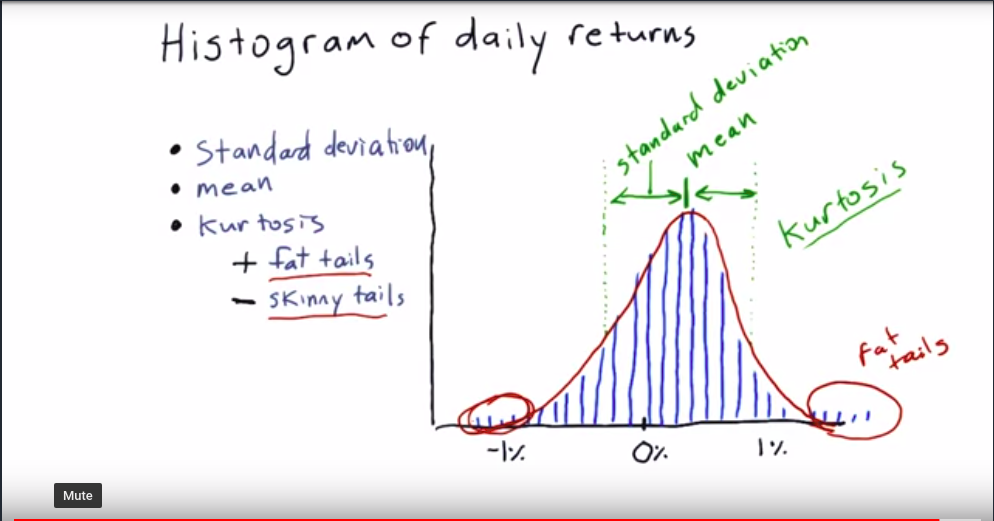 Histogram of daily returns
• Standard deviation
• mean
• Kurtosis
+ fat tails
- skinny tails
standard deviation
mean
Kurtosis
Fat tails
-1%
0%
1%
Mute